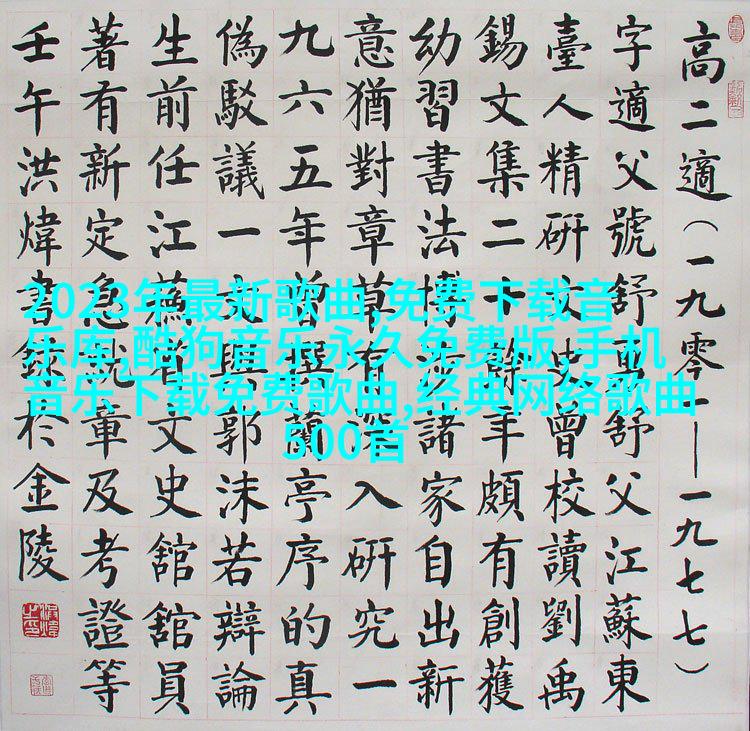 高二適（一九零一—一九七七）
字適父號舒舒父江蘇東
臺人精研文史曾校讀劉禹
錫文集二十餘年頗有創獲
幼習書法博涉諸家自出新
意猶對章草有深入研究一
九六五年曾撰蘭亭序的真
偽駁議一文與郭沫若辯論
生前任江蘇省文史舘舘員
著有新定急就章及考證等
壬午洪煒書錄於金陵
2023年最新歌曲,免费下载音
乐库,酷狗音乐永久免费版,手机
音乐下载免费歌曲,经典网络歌曲
500首